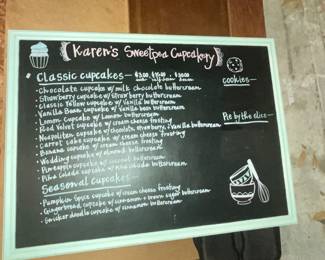 Karen's Sweetpea Cupcakery
Classic cupcakes
cookies
• Chocolate cupcake w/ milk chocolate buttercream
• Strawberry cupcake w/ strawberry buttercream
• Classic Yellow cupcake w/ vanilla buttercream
• Vanilla Bean cupcake w/ vanilla bean buttercream
• Lemon cupcake w/ Lemon buttercream
• Red Velvet cupcake w/ cream cheese frosting
Pie by the slice
• Neapolitan cupcake w/ chocolate, strawberry, & vanilla buttercream
• Carrot cake cupcake w/ cream cheese frosting
• Banana cupcake w/ cream cheese frosting
• Wedding cupcake w/ almond buttercream
• Pineapple cupcake w/ buttercream
• Piña Colada cupcake w/ piña colada buttercream
Seasonal cupcakes
• Pumpkin Spice cupcake w/ cream cheese frosting
• Gingerbread cupcake w/ cinnamon & brown sugar buttercream
• Snickerdoodle cupcake w/ cinnamon buttercream